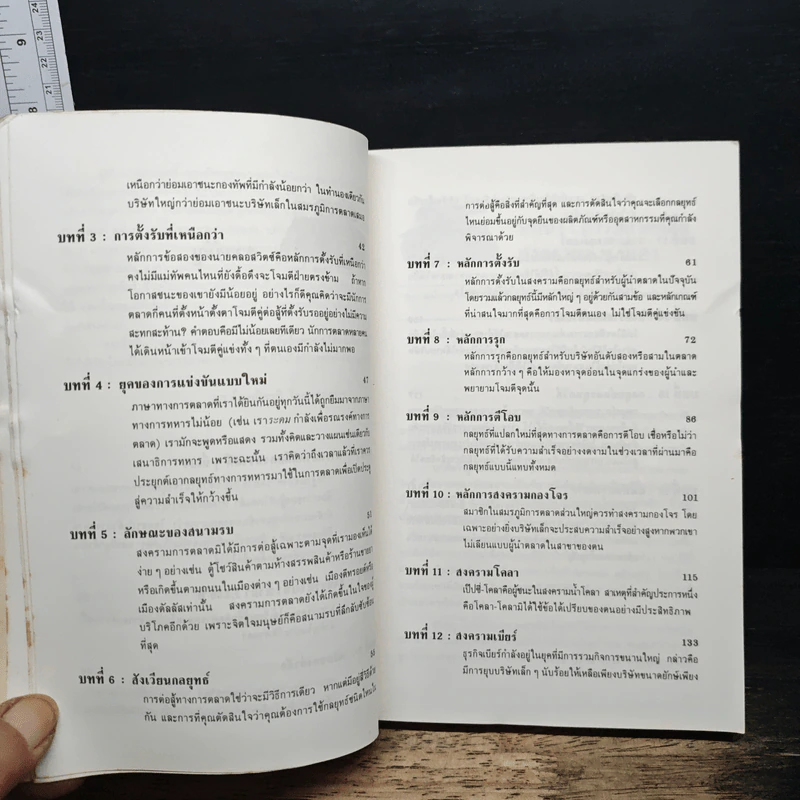 9
8
เหนือกว่าย่อมเอาชนะกองทัพที่มีกำลังน้อยกว่า ในทำนองเดียวกัน
บริษัทใหญ่กว่าย่อมเอาชนะบริษัทเล็กในสมรภูมิการตลาดเสมอ
บทที่ 3 : การตั้งรับที่เหนือกว่า 42
หลักการข้อสองของนายคลอสวิตซ์คือหลักการตั้งรับที่เหนือกว่า
คงไม่มีแม่ทัพคนไหนที่ยังดื้อดึงจะโจมตีฝ่ายตรงข้าม ถ้าหาก
โอกาสชนะของเขายังมีน้อยอยู่ อย่างไรก็ดีคุณคิดว่าจะมีนักการ
ตลาดกี่คนที่ตั้งหน้าตั้งตาโจมตีคู่ต่อสู้ที่ตั้งรับรออยู่อย่างไม่มีความ
สะทกสะท้าน? คำตอบคือมีไม่น้อยเลยทีเดียว นักการตลาดหลายคน
ได้เดินหน้าเข้าโจมตีคู่แข่งทั้ง ๆ ที่ตนเองมีกำลังไม่มากพอ
บทที่ 4 : ยุคของการแข่งขันแบบใหม่ 47
ภาษาทางการตลาดที่เราได้ยินกันอยู่ทุกวันนี้ได้ถูกยืมมาจากภาษา
ทางการทหารไม่น้อย (เช่น เราระดมกำลังเพื่อรณรงค์ทางการ
ตลาด) เรามักจะพูดหรือแสดง รวมทั้งคิดและวางแผนเช่นเดียวกับ
เสนาธิการทหาร เพราะฉะนั้น เราคิดว่าถึงเวลาแล้วที่เราควร
ประยุกต์เอากลยุทธ์ทางการทหารมาใช้ในการตลาดเพื่อเปิดประตู
สู่ความสำเร็จให้กว้างขึ้น
บทที่ 5 : ลักษณะของสนามรบ 51
สงครามการตลาดมิได้มีการต่อสู้เฉพาะตามจุดที่เรามองเห็นได้
ง่าย ๆ อย่างเช่น ตู้โชว์สินค้าตามห้างสรรพสินค้าหรือร้านขายยา
หรือเกิดขึ้นตามถนนในเมืองต่าง ๆ อย่างเช่น เมืองดีทรอยต์หรือ
เมืองดัลลัสเท่านั้น สงครามการตลาดยังได้เกิดขึ้นในใจของผู้
บริโภคอีกด้วย เพราะจิตใจมนุษย์ก็คือสนามรบที่ลึกลับซับซ้อน
ที่สุด
บทที่ 6 : สังเวียนกลยุทธ์ 55
การต่อสู้ทางการตลาดใช่ว่าจะมีวิธีการเดียว หากแต่มีอยู่สี่วิธีด้วย
กัน และการที่คุณตัดสินใจว่าคุณต้องการใช้กลยุทธ์ชนิดไหนใน
การต่อสู้คือสิ่งที่สำคัญที่สุด และการตัดสินใจว่าคุณจะเลือกกลยุทธ์
ไหนย่อมขึ้นอยู่กับจุดยืนของผลิตภัณฑ์หรืออุตสาหกรรมที่คุณกำลัง
พิจารณาด้วย
บทที่ 7 : หลักการตั้งรับ 61
หลักการตั้งรับในสงครามคือกลยุทธ์สำหรับผู้นำตลาดในปัจจุบัน
โดยรวมแล้วกลยุทธ์นี้มีหลักใหญ่ ๆ อยู่ด้วยกันสามข้อ และหลักเกณฑ์
ที่น่าสนใจมากที่สุดคือการโจมตีตนเอง ไม่ใช่โจมตีคู่แข่งขัน
บทที่ 8 : หลักการรุก 72
หลักการรุกคือกลยุทธ์สำหรับบริษัทอันดับสองหรือสามในตลาด
หลักการกว้าง ๆ คือให้มองหาจุดอ่อนในจุดแกร่งของผู้นำและ
พยายามโจมตีจุดนั้น
บทที่ 9 : หลักการตีโอบ 86
กลยุทธ์ที่แปลกใหม่ที่สุดทางการตลาดคือการตีโอบ เชื่อหรือไม่ว่า
กลยุทธ์ที่ได้รับความสำเร็จอย่างงดงามในช่วงเวลาที่ผ่านมาคือ
กลยุทธ์แบบนี้แทบทั้งหมด
บทที่ 10 : หลักการสงครามกองโจร 101
สมาชิกในสมรภูมิการตลาดส่วนใหญ่ควรทำสงครามกองโจร โดย
เฉพาะอย่างยิ่งบริษัทเล็กจะประสบความสำเร็จอย่างสูงหากพวกเขา
ไม่เลียนแบบผู้นำตลาดในสาขาของตน
บทที่ 11 : สงครามโคลา 115
เป๊ปซี่-โคลาคือผู้ชนะในสงครามน้ำโคลา สาเหตุที่สำคัญประการหนึ่ง
คือโคคา-โคลามิได้ใช้ข้อได้เปรียบของตนอย่างมีประสิทธิภาพ
บทที่ 12 : สงครามเบียร์ 133
ธุรกิจเบียร์กำลังอยู่ในยุคที่มีการรวมกิจการขนานใหญ่ กล่าวคือ
มีการยุบบริษัทเล็ก ๆ นับร้อยให้เหลือเพียงบริษัทขนาดยักษ์เพียง